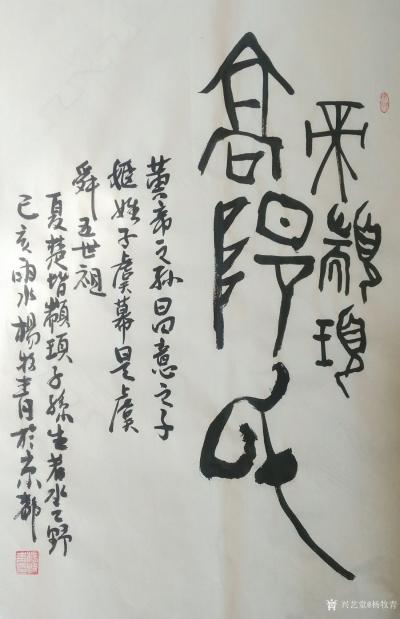 帝颛顼
高阳氏
黄帝之孙昌意之子
姬姓子虞幕是虞
舜五世祖
夏楚皆颛顼子孙生若水之野
己亥雨水杨牧青於京都
兴艺堂@杨牧青